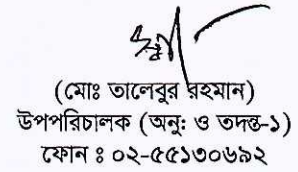 (মোঃ তালেবুর রহমান)
উপপরিচালক (অনু: ও তদন্ত-১)
ফোন ঃ ০২-৫৫১৩০৬৯২